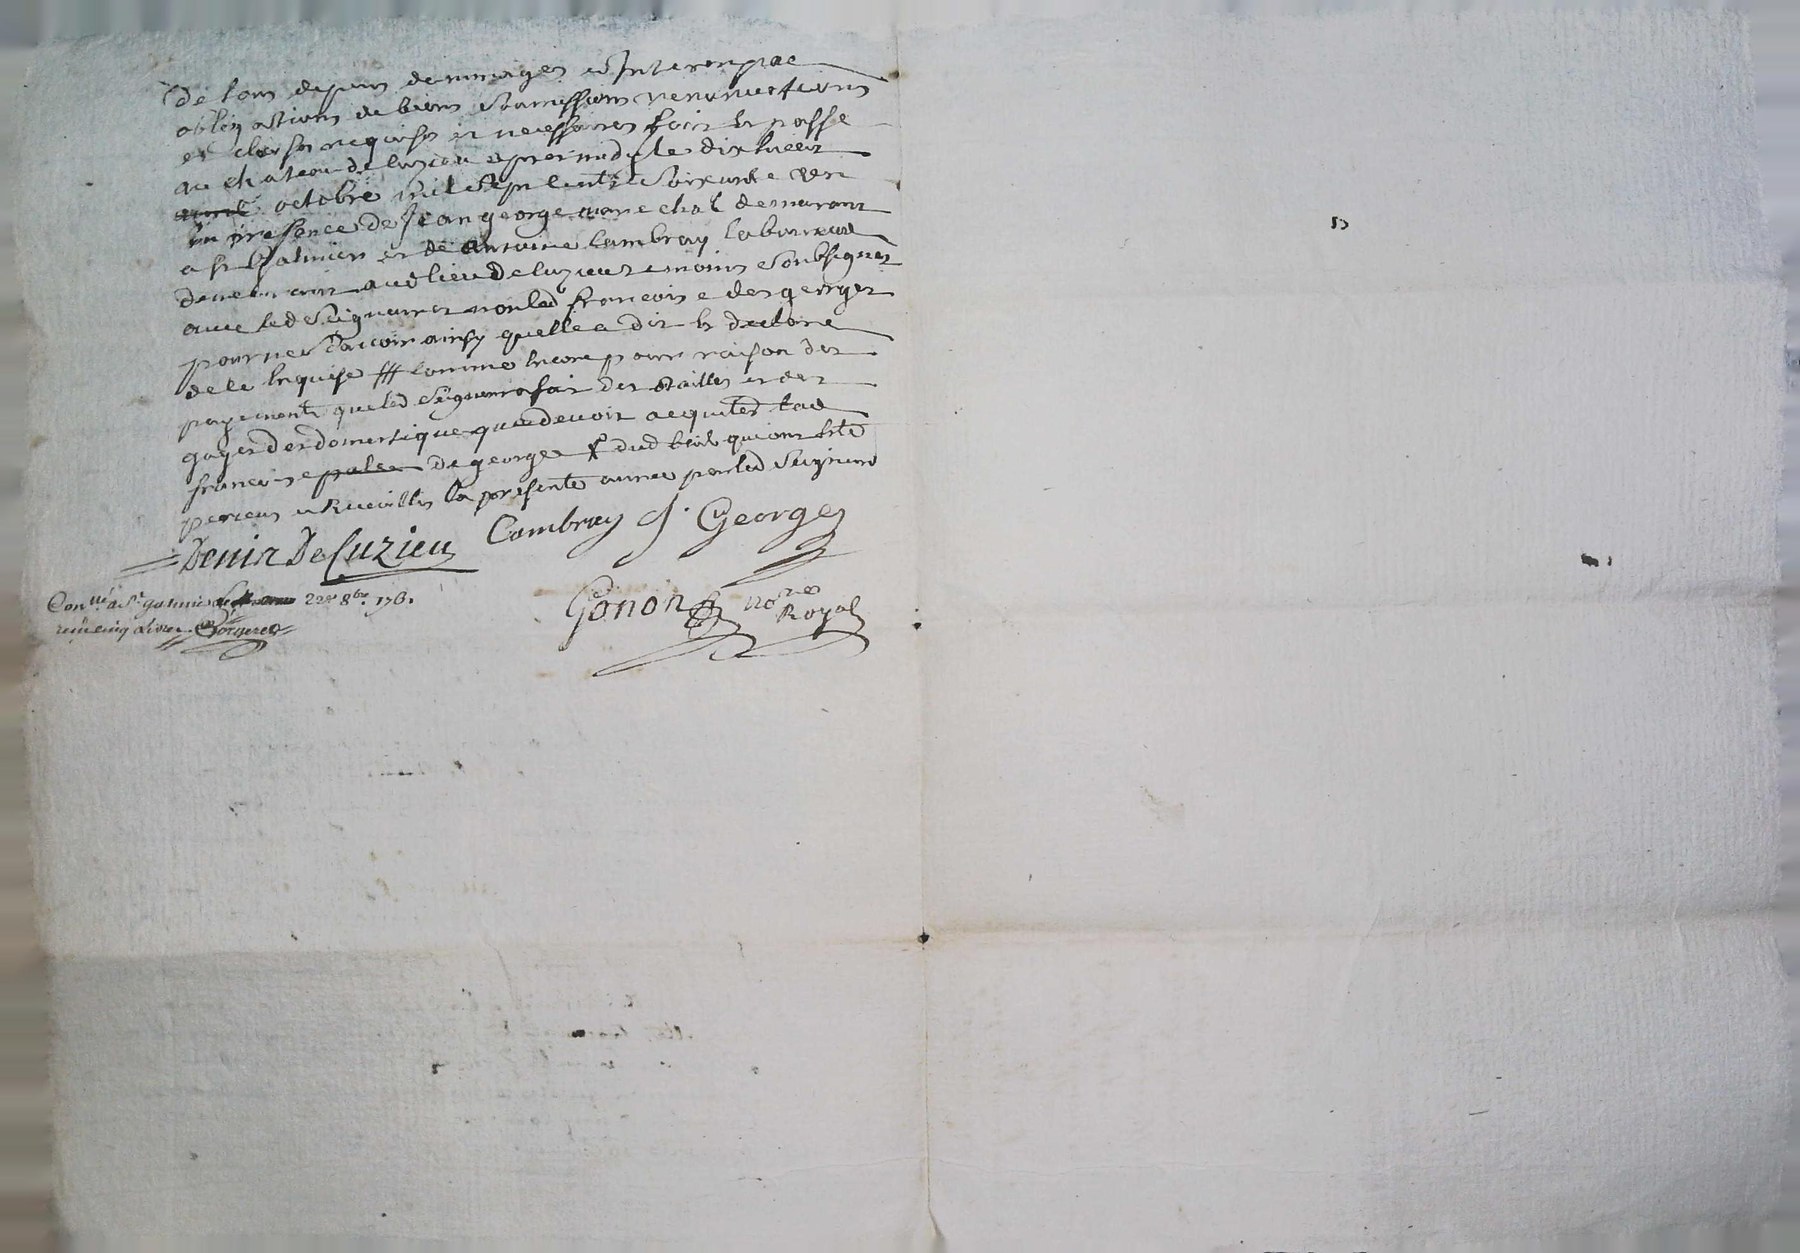 de tous depens dommages et Interets par
obligations de biens soumissions renonciations
et clauses requises et necessaires fait et passé
au chateau de luzieu apres midy le dix huit
octobre mil sept cents soixante un
en presence de Jean george marechal demurant
a St galmier et de Antoine Cambray laboureur
demeurant aud lieu de luzieu temoins soubsignes
avec led Seigneur et non lad francoise des georges
pour ne scavoir ainsy quelle a dit et declare
de ce enquise comme encore pour raison des
payements que led Seigneur a fait des tailles et des
gages des domestique que devoit acquiter lad
francoise de george dud bail qui ont été
percus et Recueillis la presente annee par led Seigneur
Denis De Luzieu Cambray J. Georges
Con.llé a St galmier 22e 8bre 1761
reçu cinq livres
Gonon no.re Royal